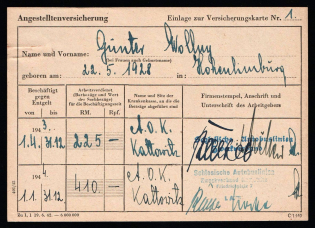 Angestelltenversicherung Einlage zur Versicherungskarte Nr. 1.
Name und Vorname: Günter Wollny
(bei Frauen auch Geburtsname)
geboren am: 22.5.1928 in: Hohenlimburg
Beschäftigt gegen Entgelt
von bis
Arbeitsverdienst
(Barbezüge und Wert der Sachbezüge) für die Beschäftigungszeit
RM. Rpf.
Name und Sitz der Krankenkasse, an die die Beiträge abgeführt sind
Firmenstempel, Anschrift und Unterschrift des Arbeitgebers
194 3.
1.4. 31.12 225 - A.O.K. Kattowitz
194 4.
1.1. 31.12 410 - A.O.K. Kattowitz
Schlesische Autobuslinien